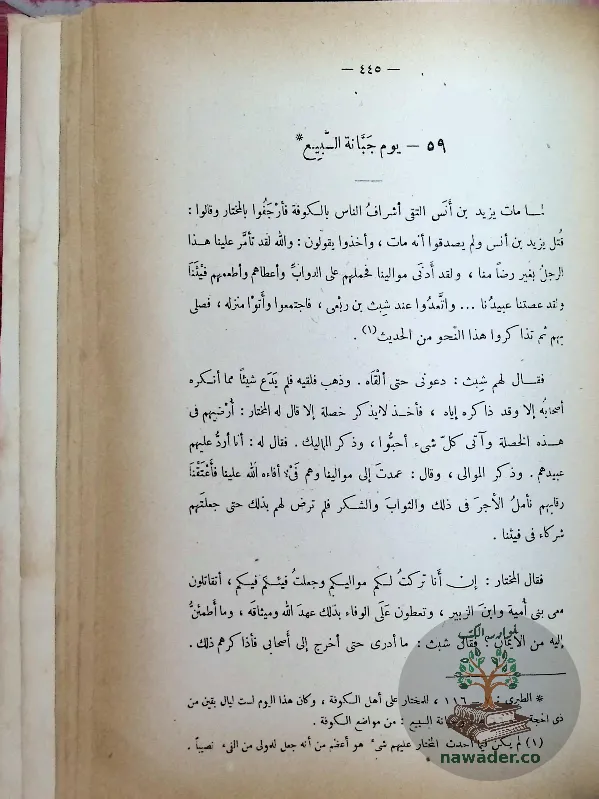 — ٤٤٥ —
٥٩ – يوم جَبَّانة السَّبِيع*
لما مات يزيد بن أَنَس التقى أشرافُ الناس بالكوفة فأرْجَفُوا بالمختار وقالوا :
قُتل يزيد بن أنس ولم يصدقوا أنه مات ، وأخذوا يقولون : والله لقد تأمّر علينا هذا
الرجلُ بغير رضاً منا ، ولقد أدنَى موالينا فحملهم على الدوابِّ وأعطاهم وأطعمهم فَيْئَنَا
ولقد عصتنا عبيدُنا ... واتَّعدُوا عند شِبث بن رِبْعى ، فاجتمعوا وأَتوْا منزله ، فصلى
بهم ثم تذاكروا هذا النَّحو من الحديث(١) .
فقال لهم شِبث : دعونى حتى ألْقَاه . وذهب فلقيه فلم يَدَع شيئاً مما أنكره
أصحابُه إلا وقد ذاكره إياه ، فأخذ لا يذكر خصلة إلا قال له المختار : أُرْضِيهم فى
هذه الخصلة وآتى كلّ شىء أحبُّوا ، وذكر المماليك . فقال له : أنا أردُّ عليهم
عبيدهم . وذكر الموالى ، وقال : عمدتَ إلى موالينا وهم فَىْءٌ أفاءه الله علينا فأَعْتَقْنَا
رقابهم نأملُ الأجرَ فى ذلك والثوابَ والشكر فلم ترض لهم بذلك حتى جعلتَهم
شركاء فى فيئنا .
فقال المختار : إن أَنا تركتُ لكم مواليكم وجعلتُ فيئكم فيكم ، أتقاتلون
معى بنى أمية وابنَ الزبير ، وتعطون عَلَى الوفاء بذلك عهدَ الله وميثاقه ، وما أطمئنُّ
إليه من الأيمان ؟ فقال شبث : ما أدرى حتى أخرج إلى أَصحابى فأذاكرهم ذلك .
* الطبرى : – ١١٦ ، للمختار على أهل الكوفة ، وكان هذا اليوم لست ليال بقين من
ذى الحجة السبيع : من مواضع الكوفة .
(١) لم يكن فيما أحدث المختار عليهم شىء هو أعظم من أنه جعل للمولى من الفىء نصيباً .
نوادر الكتب
nawader.co